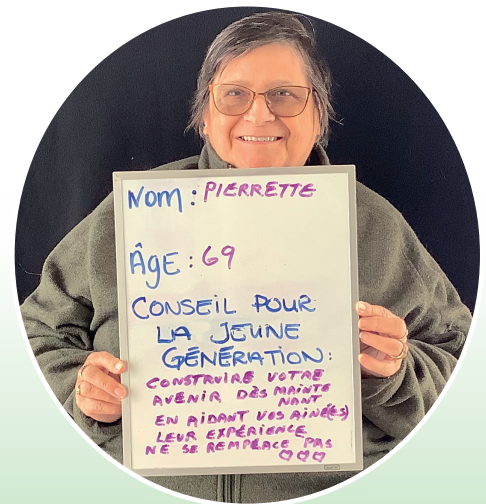 Nom : PIERRETTE
ÂGE : 69
CONSEIL POUR
LA JEUNE
GÉNÉRATION :
CONSTRUIRE VOTRE
AVENIR DÈS MAINTE
NANT
EN AIDANT VOS AINÉ(ES)
LEUR EXPÉRIENCE
NE SE REMPLACE PAS
♡♡♡